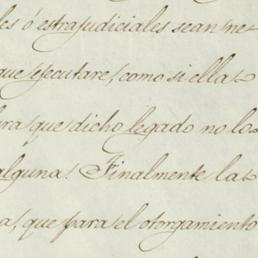 les ó estrajudiciales sean ne
que ejecutare, como si ella
ra que dicho legado no lo
alguna. Finalmente la
a, que para el otorgamiento